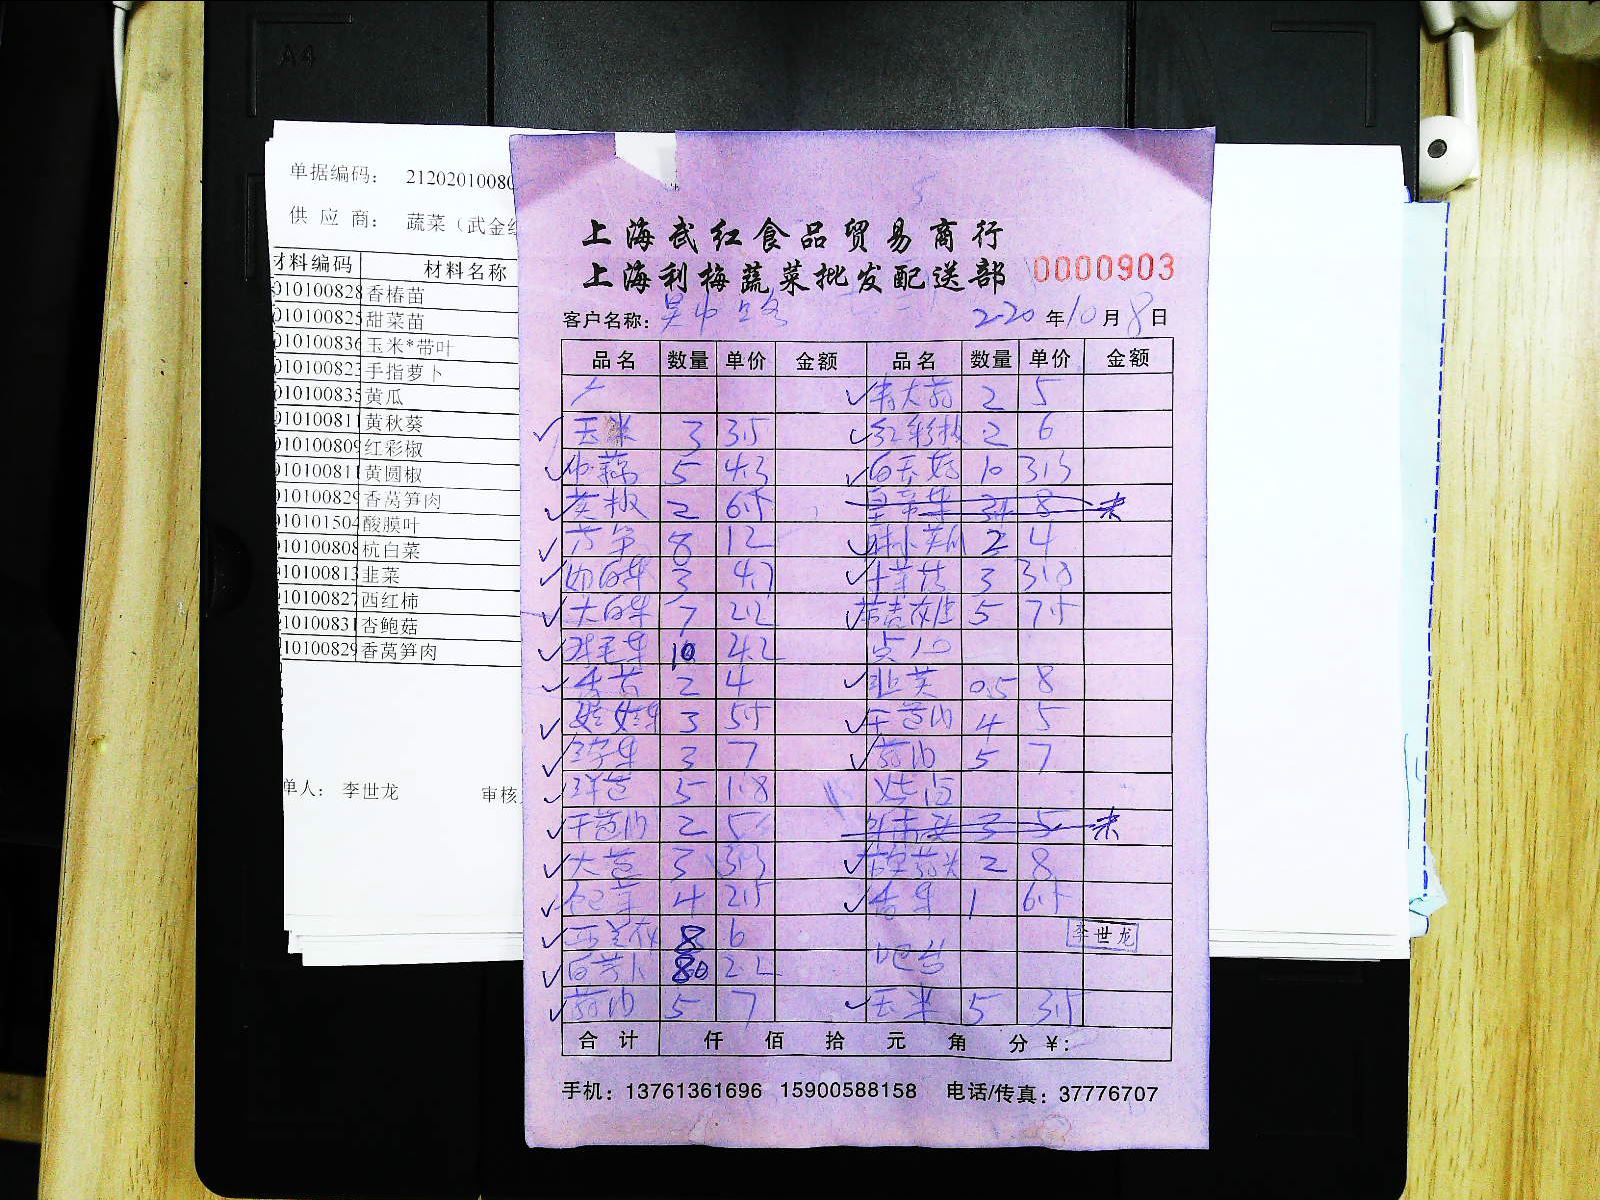 A4
单据编码： 21202010080
供 应 商： 蔬菜（武金红
材料编码 材料名称
010100828 香椿苗
010100825 甜菜苗
010100836 玉米*带叶
010100823 手指萝卜
010100835 黄瓜
01010081 黄秋葵
010100809 红彩椒
01010081 黄圆椒
010100829 香莴笋肉
010101504 酸膜叶
010100808 杭白菜
010100813 韭菜
010100827 西红柿
01010083 杏鲍菇
010100829 香莴笋肉
单人： 李世龙 审核
上海武红食品贸易商行
上海利梅蔬菜批发配送部 0000903
客户名称： 吴中路 2020 年 10 月 8 日
品名 数量 单价 金额 品名 数量 单价 金额
2 5
玉米 3 3.5 红彩椒 2 6
5 4.3 白玉菇 10 3.3
黄椒 2 6.5 皇帝菜 8 未
芦笋 8 12 2 4
奶白菜 3 4.7 3 3.8
大白菜 7 2.2 5 7.5
鸡毛菜 10 4.2 点心
香芹 2 4 韭黄 0.5 8
娃娃菜 3 5.5 干葱肉 4 5
3 7 5 7
洋葱 5 1.8 烧卤
干葱肉 2 5 3 5 未
大葱 3 3.3 2 8
包菜 4 2.5 香菜 1 6.5
西兰花 8 6 李世龙
白萝卜 80 2.2 吧台
5 7 玉米 5 3.5
合 计 仟 佰 拾 元 角 分 ¥：
手机：13761361696 15900588158 电话/传真：37776707